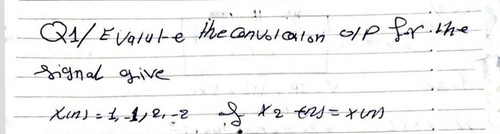 Q1/ Evalute the convolcaion o/p for the
signal give
x(n) = 1, -1, 2, -2 & x2 (n) = x(n)